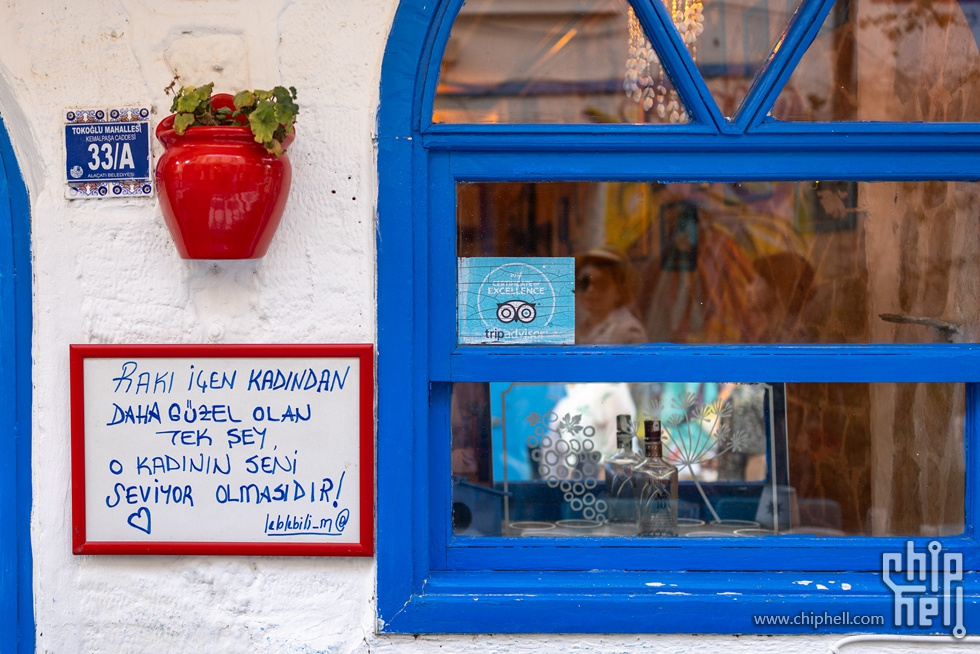 TOKOĞLU MAHALLESİ
KEMALPAŞA CADDESİ
33/A
ALAÇATI BELEDİYESİ
RAKI İÇEN KADINDAN
DAHA GÜZEL OLAN
TEK ŞEY,
O KADININ SENİ
SEVİYOR OLMASIDIR!
leblebili_m@
CERTIFICATE of
EXCELLENCE
tripadvisor
www.chiphell.com
chip
hell